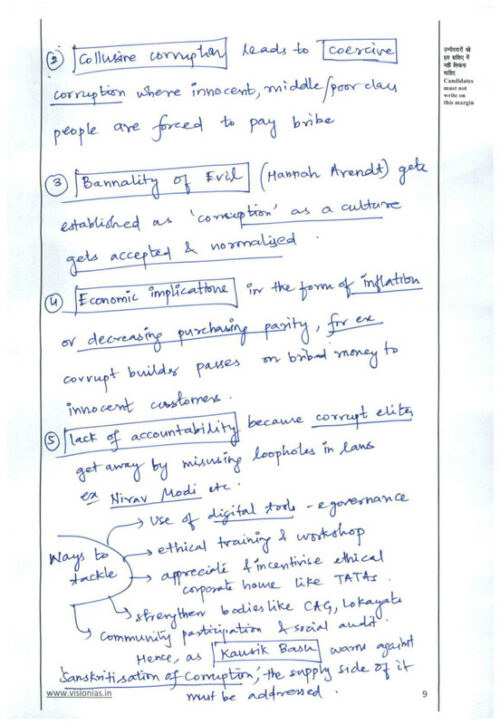 ② Collusive corruption leads to coercive
corruption where innocent, middle/poor class
people are forced to pay bribe
③ Bannality of Evil (Hannah Arendt) gets
established as 'corruption' as a culture
gets accepted & normalised.
④ Economic implications in the form of inflation
or decreasing purchasing parity, for ex
corrupt builder passes on bribed money to
innocent customers.
⑤ lack of accountability because corrupt elites
get away by misusing loopholes in laws
ex Nirav Modi etc.
Ways to tackle
→ use of digital tools - e governance
→ ethical training & workshop
→ appreciate & incentivise ethical
corporate house like TATAs.
→ strengthen bodies like CAG, Lokayata
→ community participation & social audit.
Hence, as Kausik Basu warns against
'Sanskritisation of Corruption', the supply side of it
must be addressed.
उम्मीदवारों को
इस हाशिए में
नहीं लिखना
चाहिए
Candidates
must not
write on
this margin
www.visionias.in
9